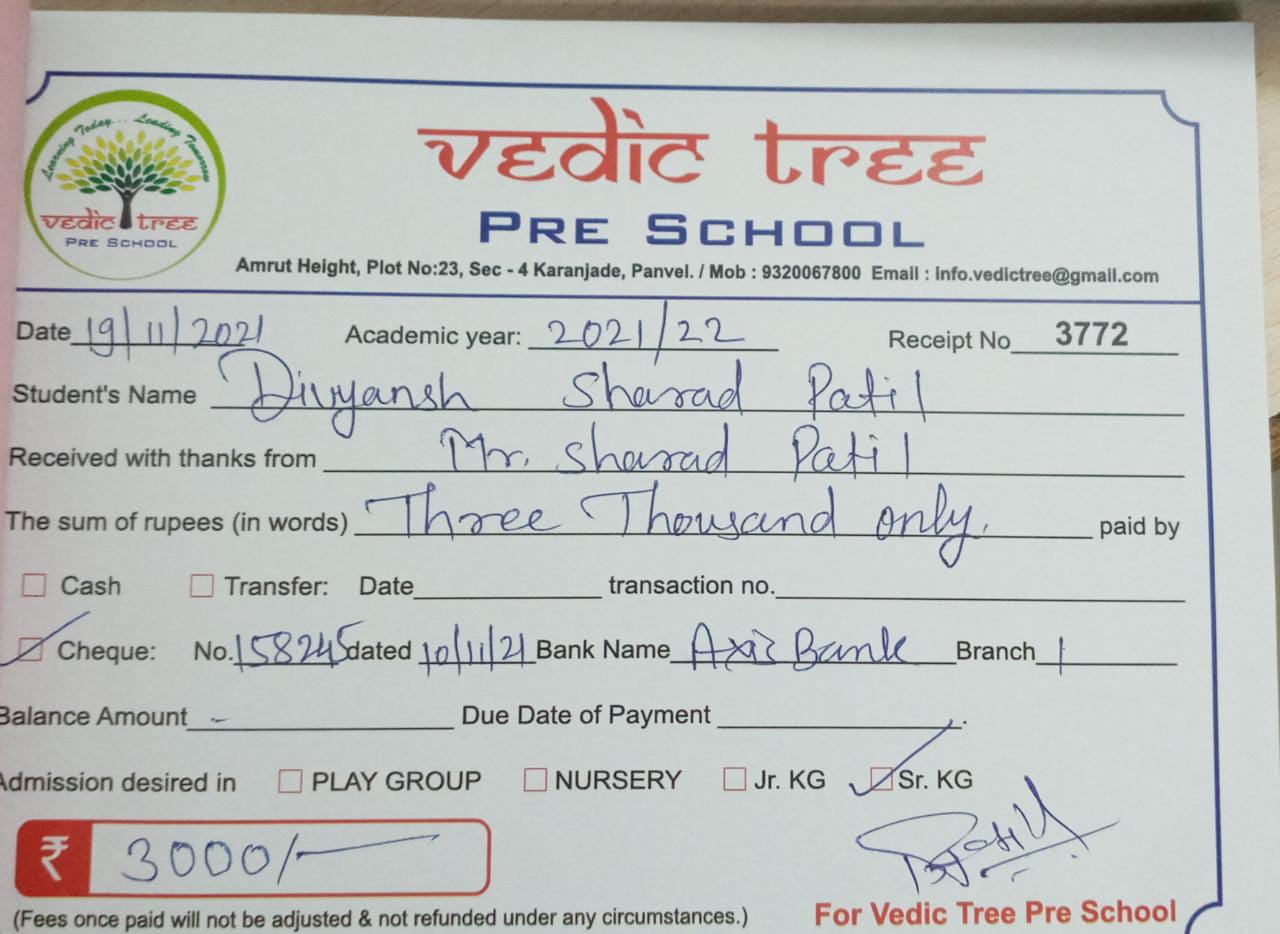 Learning Today... Leading Tomorrow
vedic tree
PRE SCHOOL
vedic tree
PRE SCHOOL
Amrut Height, Plot No:23, Sec - 4 Karanjade, Panvel. / Mob : 9320067800 Email : info.vedictree@gmail.com
Date 19/11/2021 Academic year: 2021/22 Receipt No 3772
Student's Name Divyansh Sharad Patil
Received with thanks from Mr. Sharad Patil
The sum of rupees (in words) Three Thousand only. paid by
Cash Transfer: Date transaction no.
Cheque: No. 158245 dated 10/11/21 Bank Name Axis Bank Branch
Balance Amount - Due Date of Payment .
Admission desired in PLAY GROUP NURSERY Jr. KG Sr. KG
₹ 3000/-
(Fees once paid will not be adjusted & not refunded under any circumstances.) For Vedic Tree Pre School